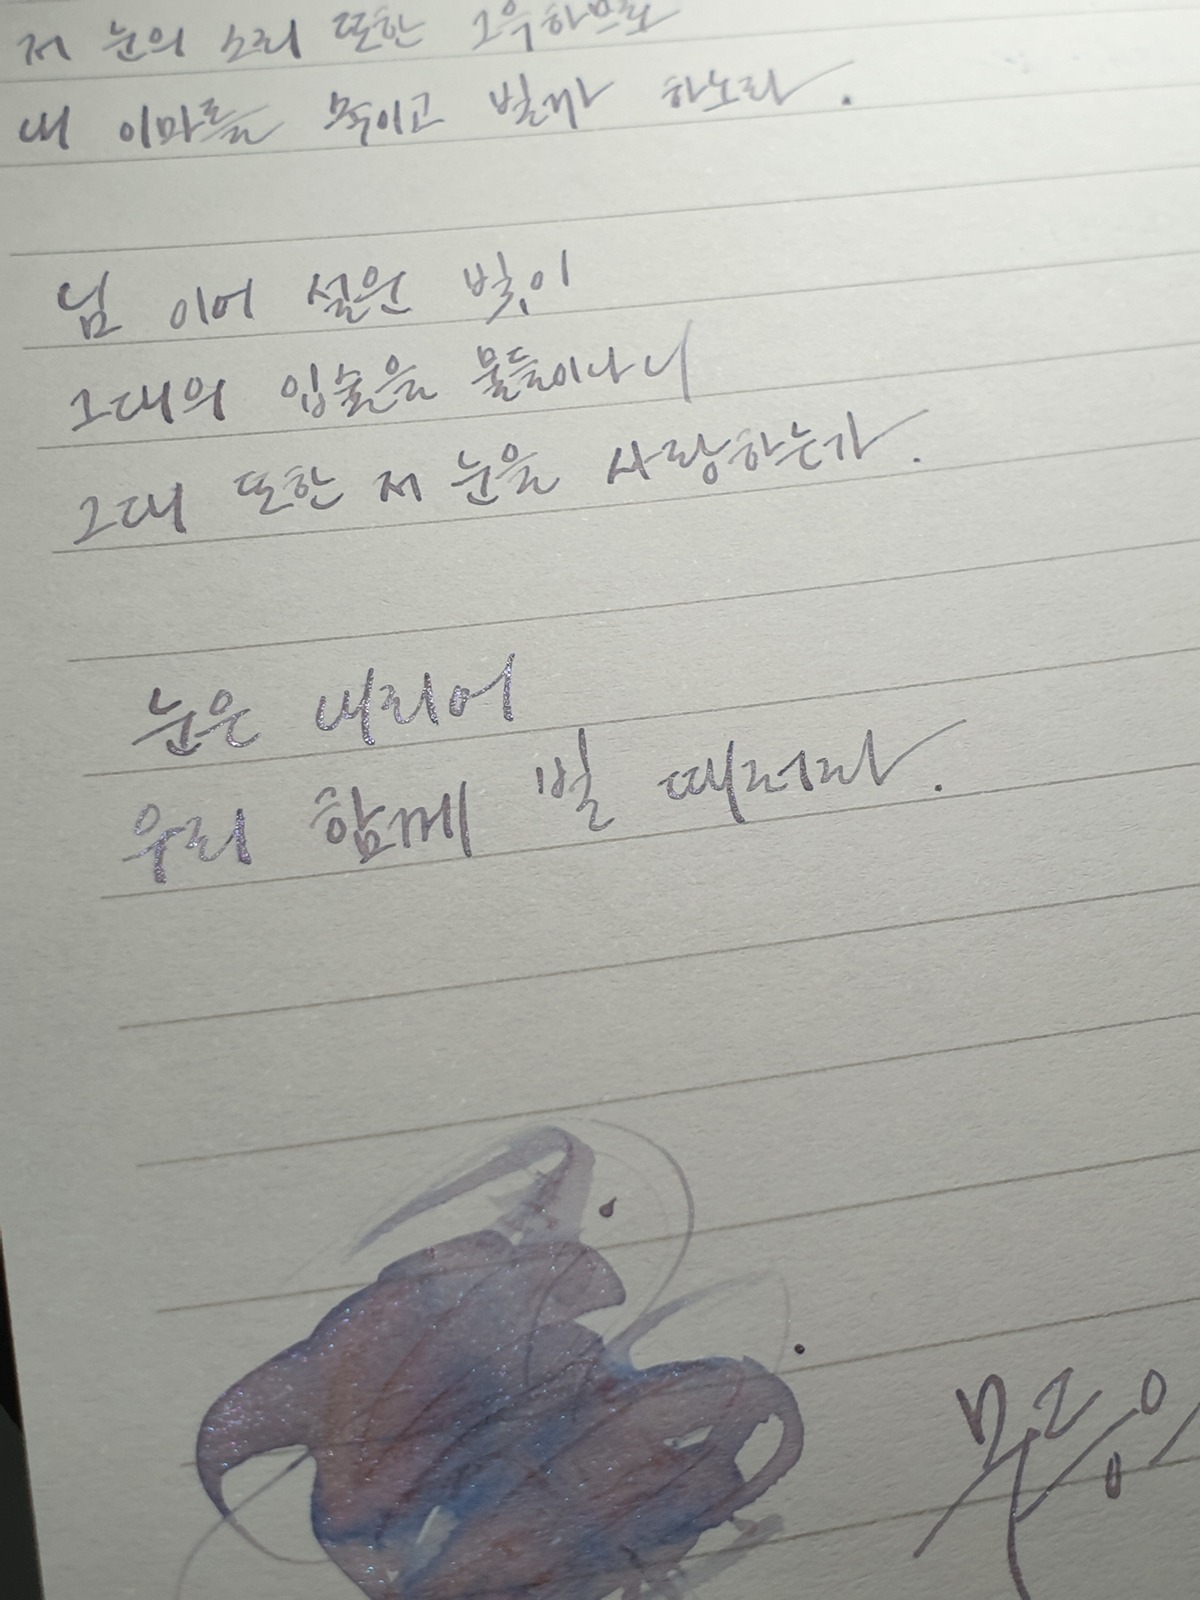 저 눈의 소리 또한 그윽하므로
내 이마를 묵이고 빌까 하노라.
님 이어 설운 빛이
그대의 입술을 물들이나니
그대 또한 저 눈을 사랑하는가.
눈은 내리어
우리 함께 빌 때러라.